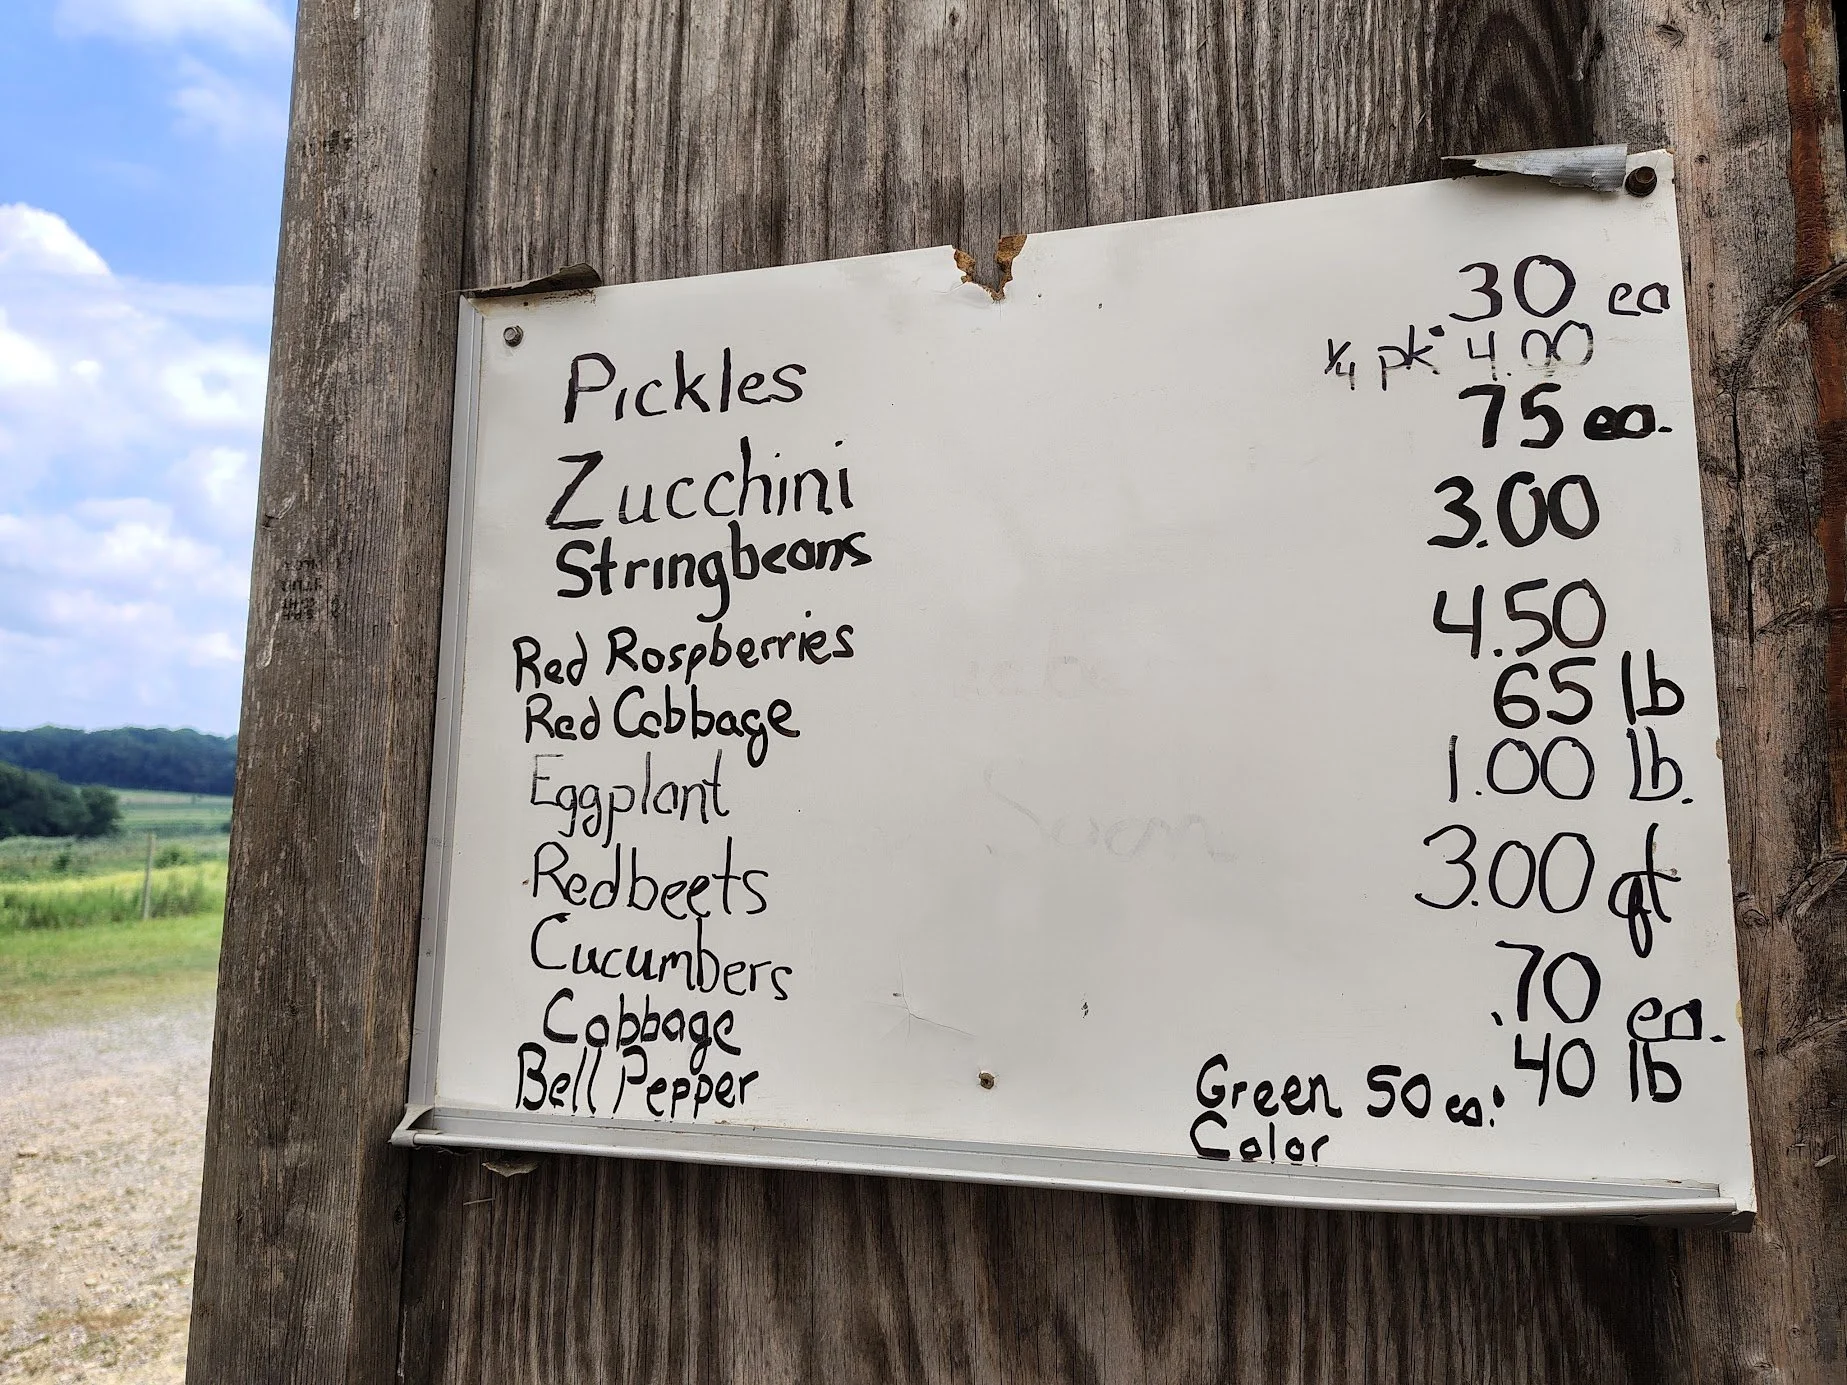 Pickles 30 ea
1/4 pk 4.00
Zucchini 75 ea.
Stringbeans 3.00
Red Raspberries 4.50
Red Cabbage 65 lb
Eggplant 1.00 lb.
Redbeets 3.00 qt
Cucumbers .70 ea.
Cabbage 40 lb
Bell Pepper Green 50 ea.
Color